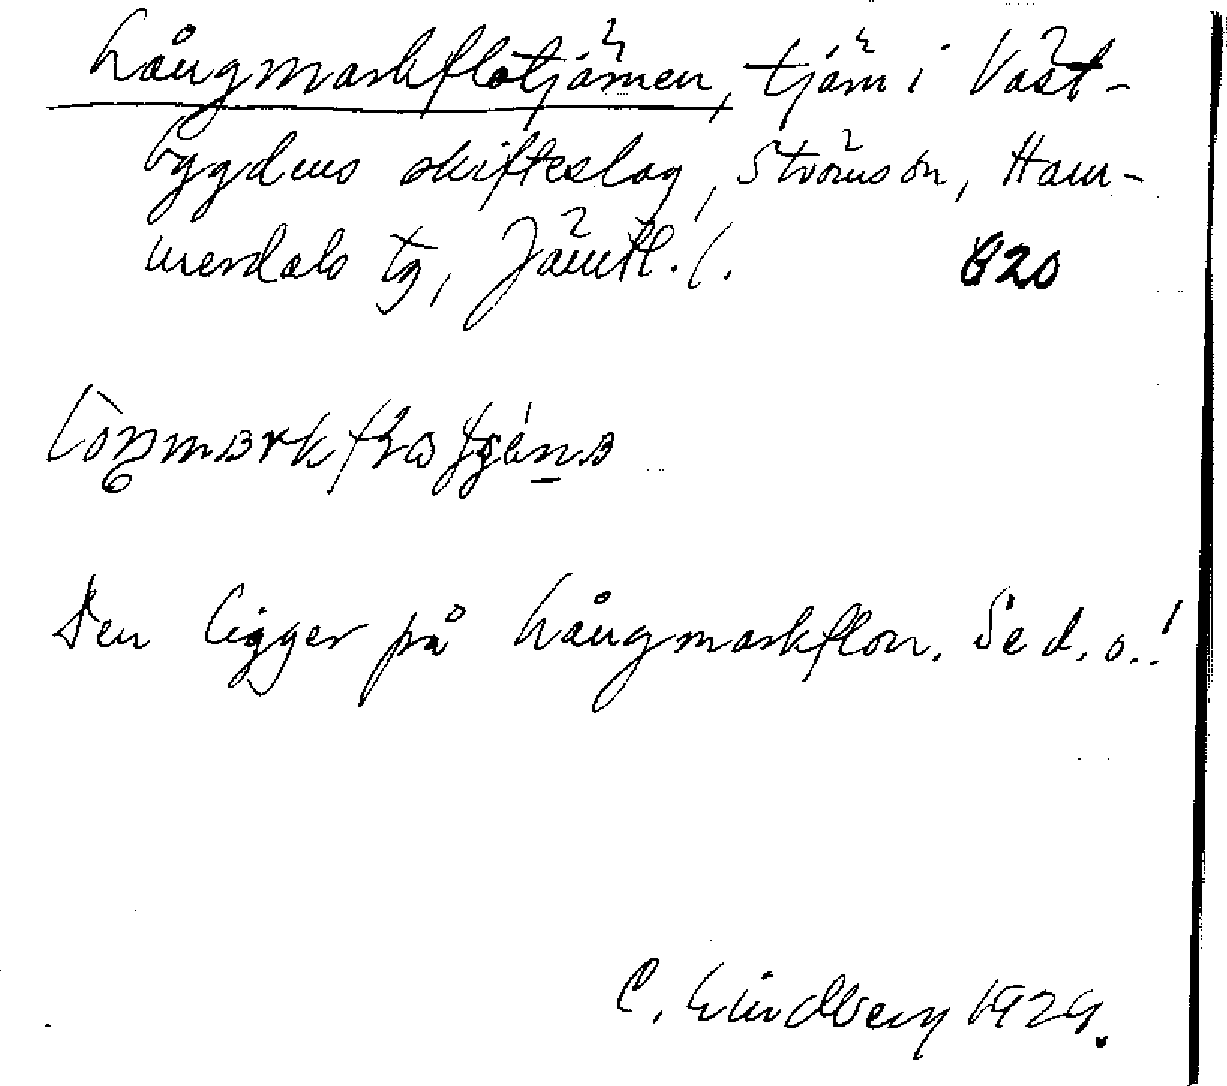 Långmarkflotjärnen, tjärn i Väst-
bygdens skifteslag, Ströms sn, Ham-
merdals tg, Jämtl. l. 820
Den ligger på Långmarkflon. Se d. o.!
C. Lindberg 1929.